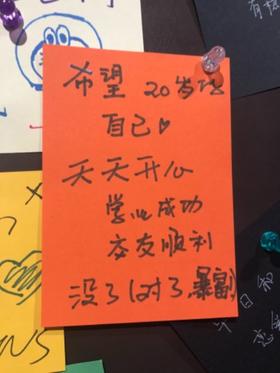 希望20岁的
自己♥
天天开心
学业成功
交友顺利
没了(对了,暴富)
NS
有
平日和